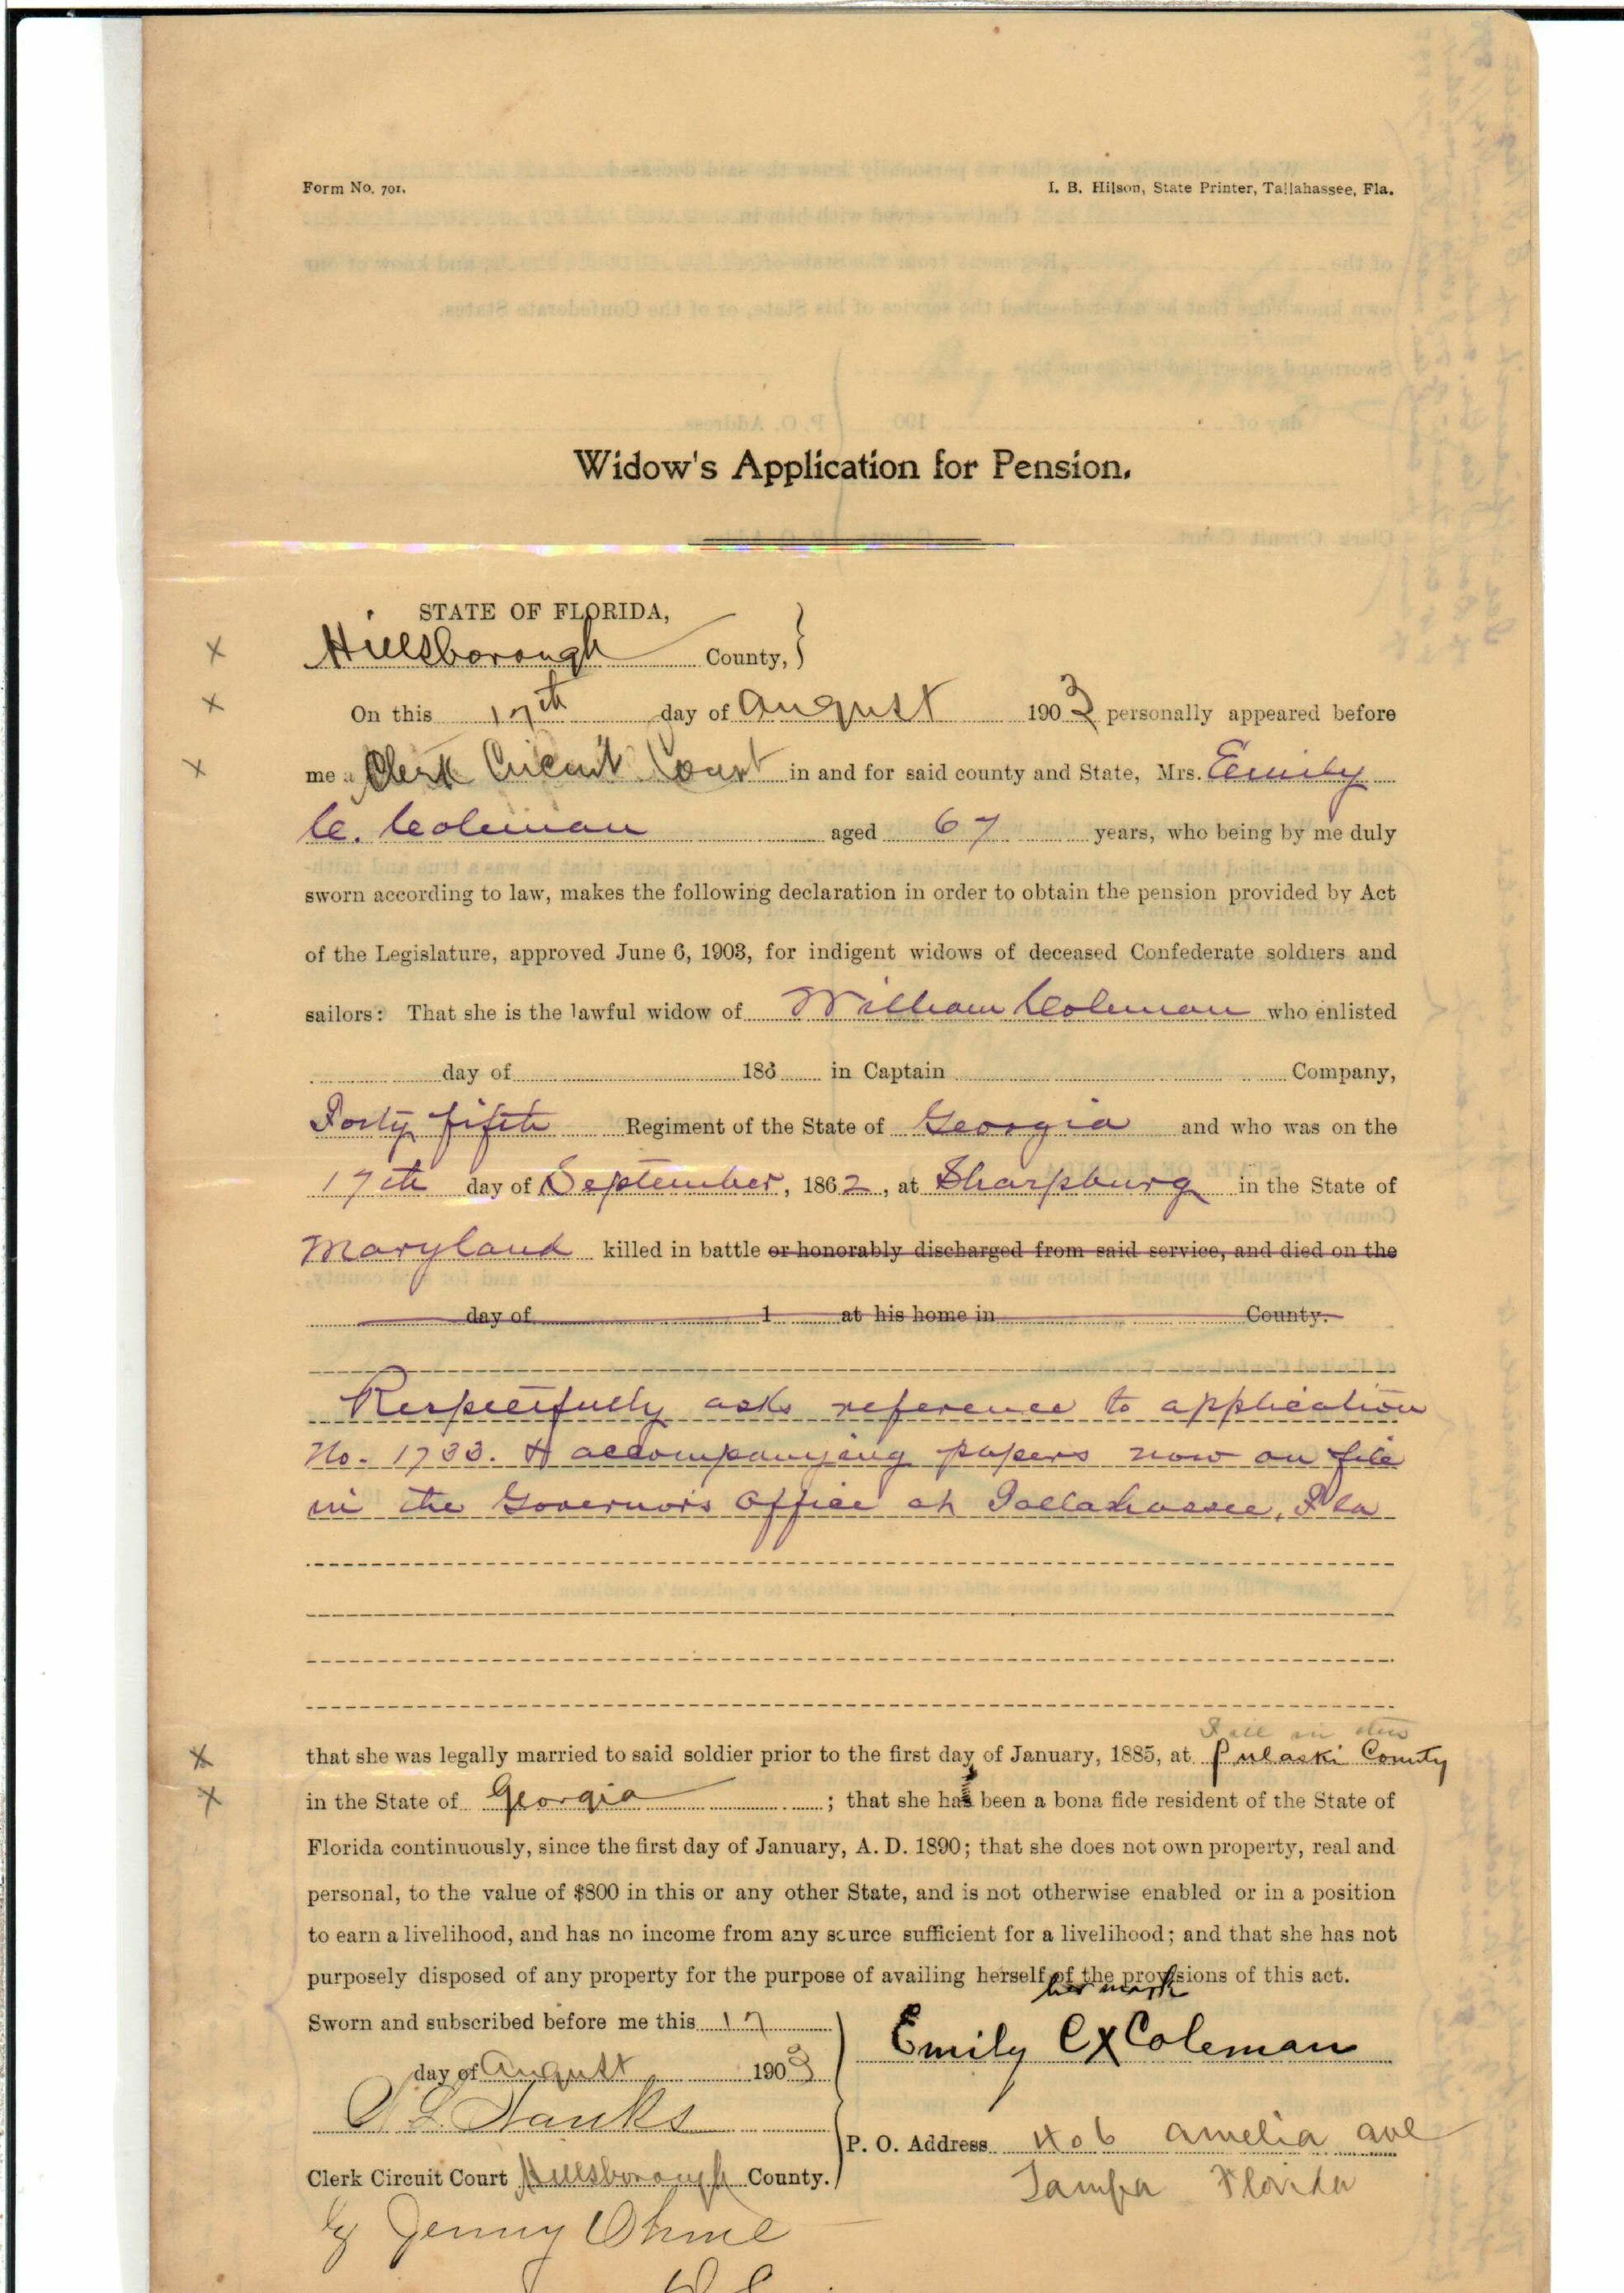 Form No. 701.
I. B. Hilson, State Printer, Tallahassee, Fla.
Widow's Application for Pension.
STATE OF FLORIDA,
Hillsborough County, }
On this 17th day of August 1903 personally appeared before
me a Clerk Circuit Court in and for said county and State, Mrs. Emily
C. Coleman aged 67 years, who being by me duly
sworn according to law, makes the following declaration in order to obtain the pension provided by Act
of the Legislature, approved June 6, 1903, for indigent widows of deceased Confederate soldiers and
sailors: That she is the lawful widow of William Coleman who enlisted
day of 186 in Captain Company,
Forty fifth Regiment of the State of Georgia and who was on the
17th day of September, 1862, at Sharpburg in the State of
Maryland killed in battle or honorably discharged from said service, and died on the
day of 1 at his home in County.
Respectfully asks reference to application
No. 1733. & accompanying papers now on file
in the Governor's Office at Tallahassee, Fla
Fill in this
that she was legally married to said soldier prior to the first day of January, 1885, at Pulaski County
in the State of Georgia ; that she has been a bona fide resident of the State of
Florida continuously, since the first day of January, A. D. 1890; that she does not own property, real and
personal, to the value of $800 in this or any other State, and is not otherwise enabled or in a position
to earn a livelihood, and has no income from any source sufficient for a livelihood; and that she has not
purposely disposed of any property for the purpose of availing herself of the provisions of this act.
her mark
Sworn and subscribed before me this 17
Emily C X Coleman
day of August 1903
Hanks
P. O. Address 406 Amelia ave
Clerk Circuit Court Hillsborough County.
Tampa Florida
by Jenny Ohme
D C